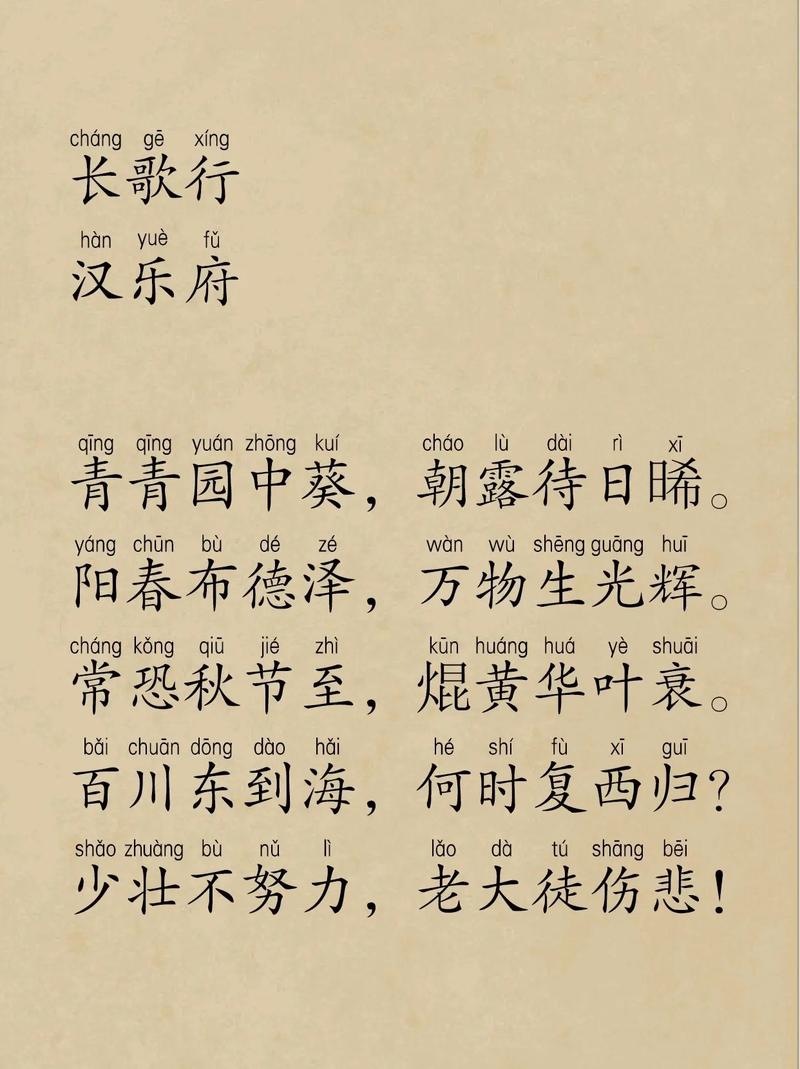 cháng gē xíng
长歌行
hàn yuè fǔ
汉乐府
qīng qīng yuán zhōng kuí cháo lù dài rì xī
青青园中葵，朝露待日晞。
yáng chūn bù dé zé wàn wù shēng guāng huī
阳春布德泽，万物生光辉。
cháng kǒng qiū jié zhì kūn huáng huá yè shuāi
常恐秋节至，焜黄华叶衰。
bǎi chuān dōng dào hǎi hé shí fù xī guī
百川东到海，何时复西归？
shǎo zhuàng bù nǔ lì lǎo dà tú shāng bēi
少壮不努力，老大徒伤悲！